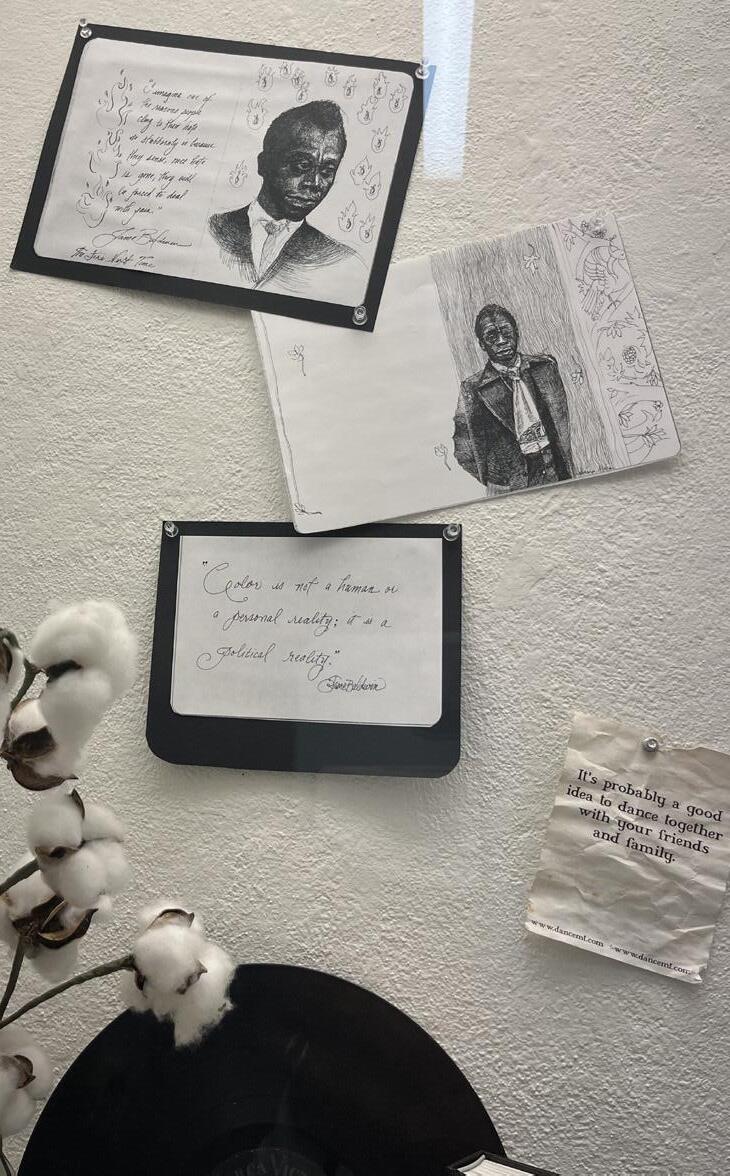 "I imagine one of
the reasons people
cling to their hate
so stubbornly is because
they sense, once hate
is gone, they will
be forced to deal
with pain."
James Baldwin
The Fire Next Time
"Color is not a human or
a personal reality; it is a
political reality."
James Baldwin
It's probably a good
idea to dance together
with your friends
and family.
www.dancemf.com www.dancemf.com
RCA VICT